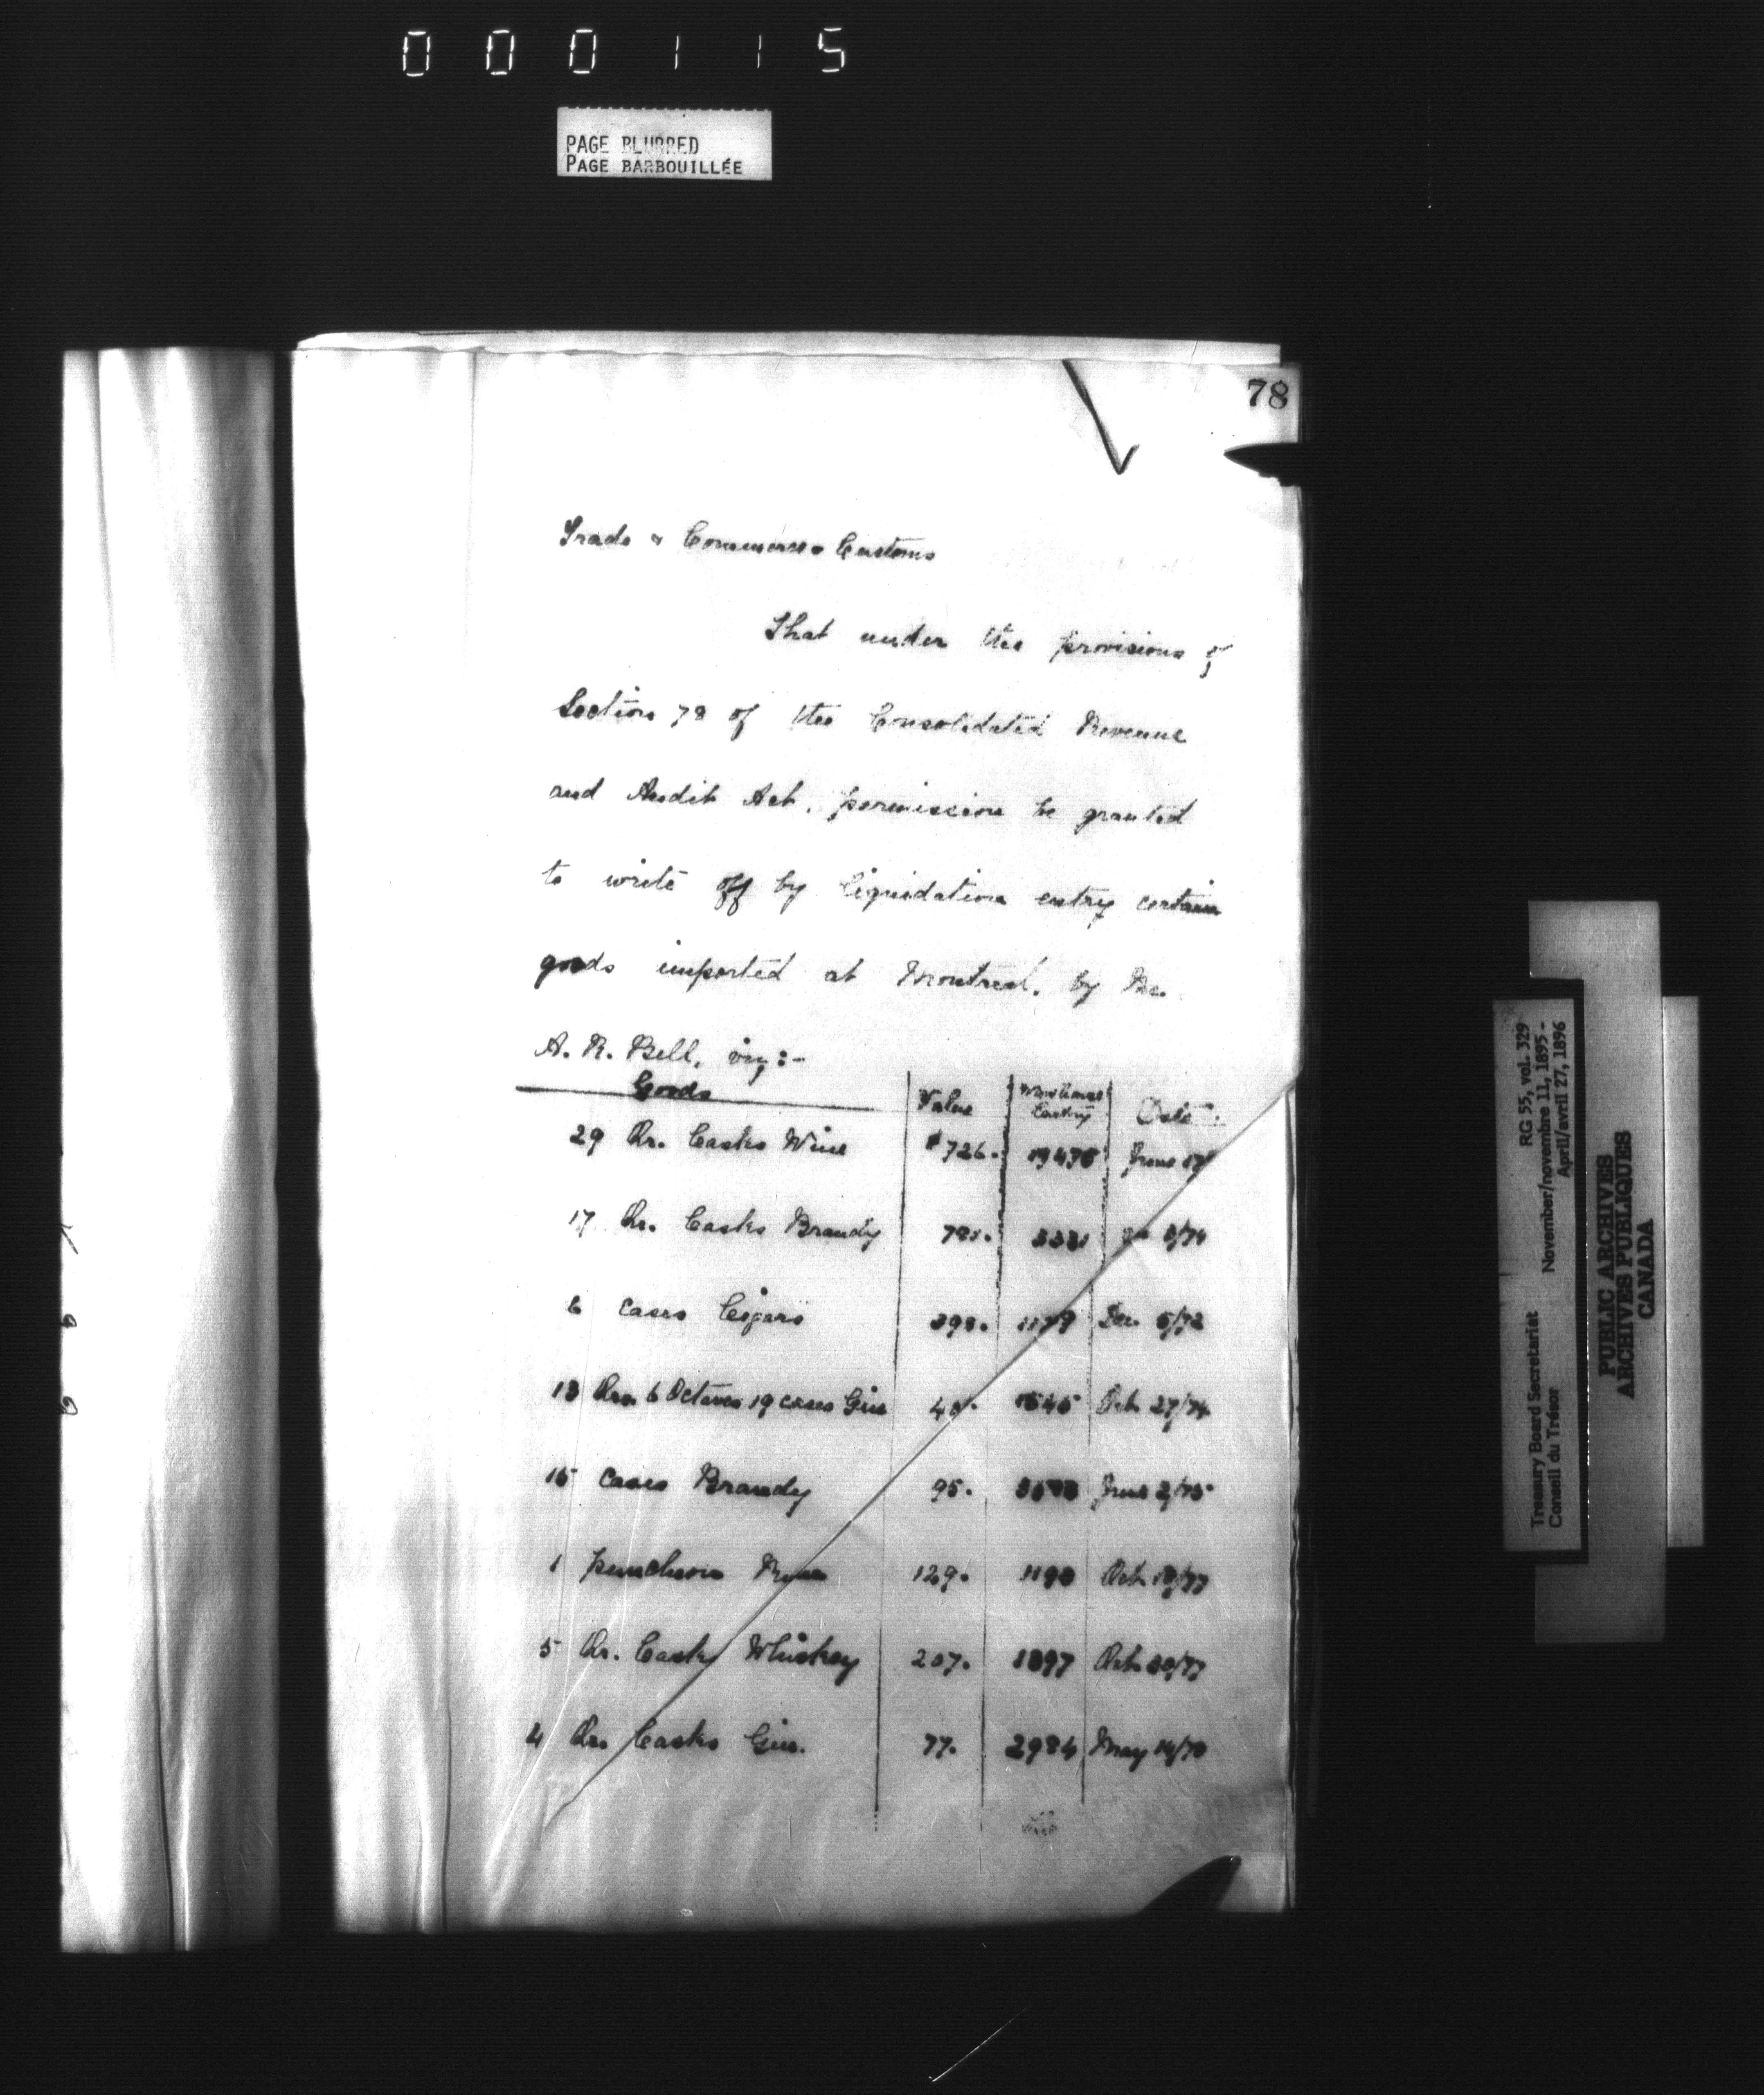 000115
PAGE BLURRED
PAGE BARBOUILLÉE
78
Trade & Commerce & Customs
That under the provisions of
Section 78 of the Consolidated Revenue
and Audit Act, permission be granted
to write off by liquidation entry certain
goods imported at Montreal, by Mr.
A. R. Bell, viz:-
Goods Value Warehouse Entry Date
29 Qr. Casks Wine $726. June
17 Qr. Casks Brandy
6 cases Cigars 398. Dec. 5/72
13 Qrs. 6 Octaves 19 cases Gin 1545 Oct. 27/74
15 cases Brandy 95. June 2/75
1 puncheon Rum 129. 1190 Oct.
5 Qr. Casks Whiskey 207. 1397 Oct. 30/77
4 Qr. Casks Gin. 77. 2984 May
Treasury Board Secretariat RG 55, vol. 329
Conseil du Trésor November/novembre 11, 1895 -
April/avril 27, 1896
PUBLIC ARCHIVES
ARCHIVES PUBLIQUES
CANADA